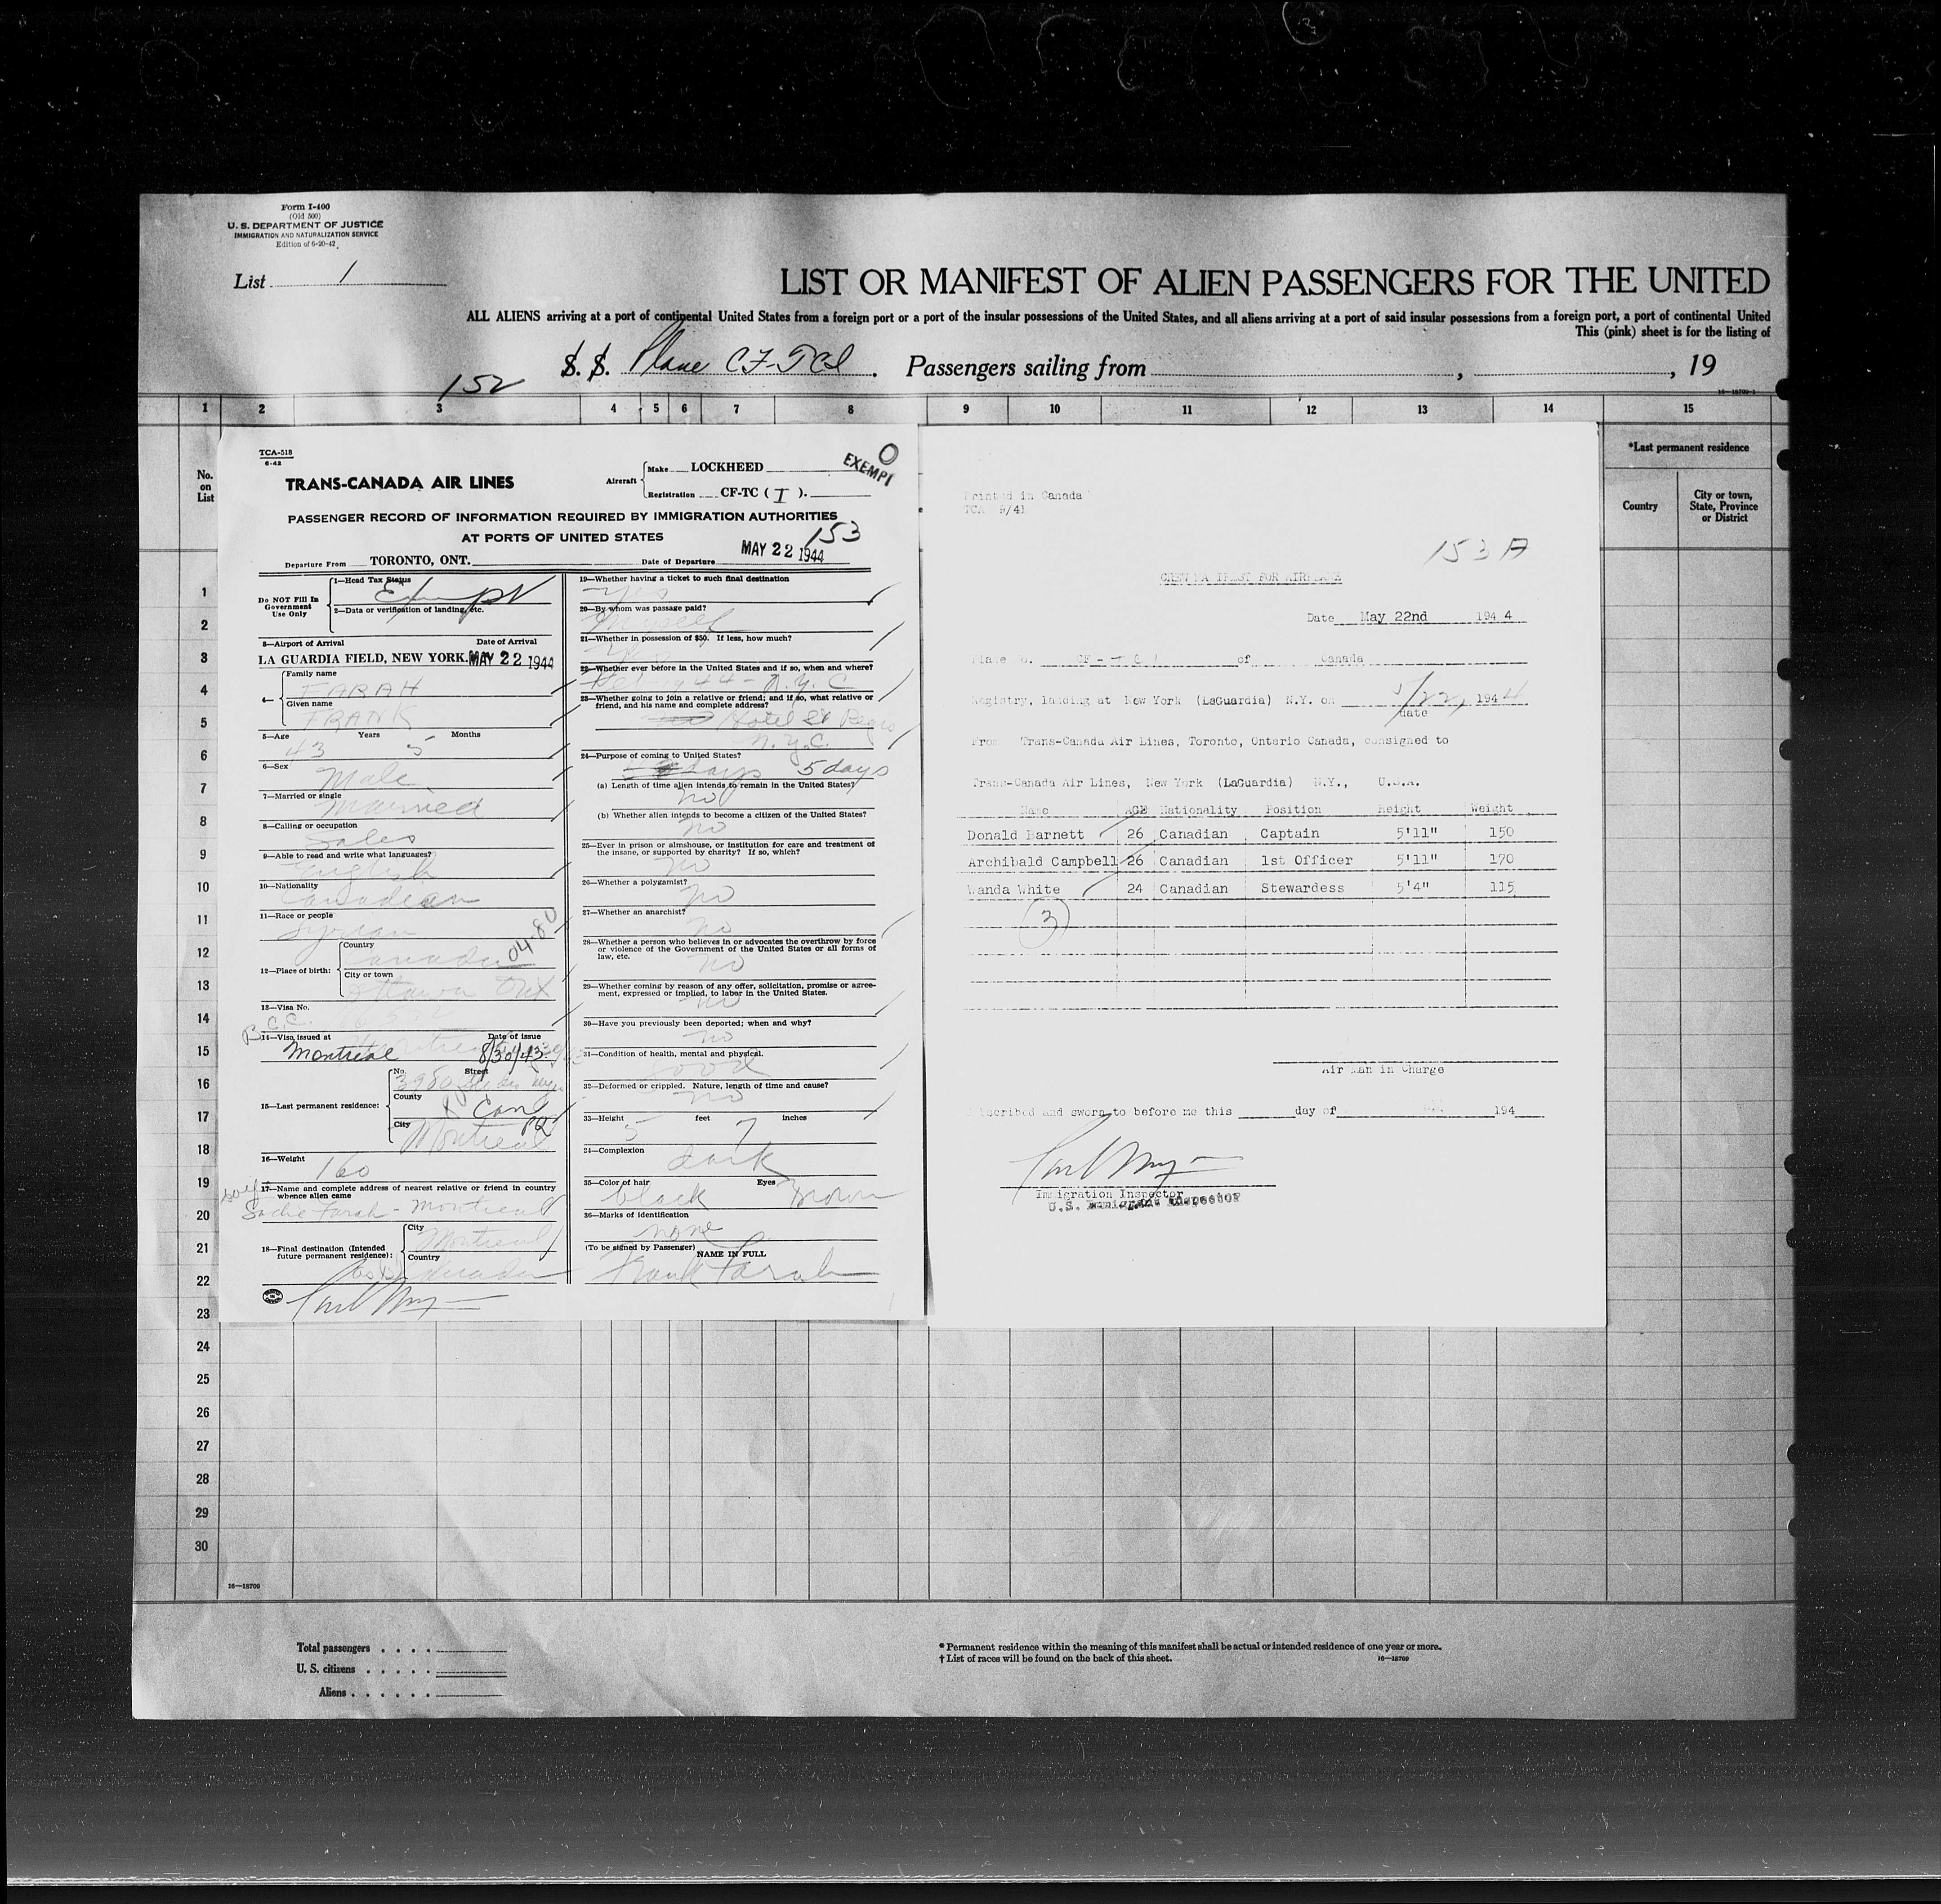 Form I-400
(Old 500)
U. S. DEPARTMENT OF JUSTICE
IMMIGRATION AND NATURALIZATION SERVICE
Edition of 6-20-42
List 1
LIST OR MANIFEST OF ALIEN PASSENGERS FOR THE UNITED
ALL ALIENS arriving at a port of continental United States from a foreign port or a port of the insular possessions of the United States, and all aliens arriving at a port of said insular possessions from a foreign port, a port of continental United
This (pink) sheet is for the listing of
S. S. Plane CF-TCI. Passengers sailing from , , 19
152
16—18709-1
1 2 3 4 5 6 7 8 9 10 11 12 13 14 15
No. on List
*Last permanent residence
Country
City or town, State, Province or District
TCA-518
6-42
TRANS-CANADA AIR LINES
Aircraft
Make LOCKHEED
Registration CF-TC ( I ).
O
EXEMPT
PASSENGER RECORD OF INFORMATION REQUIRED BY IMMIGRATION AUTHORITIES
AT PORTS OF UNITED STATES
153
Departure From TORONTO, ONT. Date of Departure MAY 22 1944
Do NOT Fill In Government Use Only
1—Head Tax Status
Exempt
2—Data or verification of landing, etc.
3—Airport of Arrival Date of Arrival
LA GUARDIA FIELD, NEW YORK. MAY 22 1944
4— Family name
FARAH
Given name
FRANK
5—Age Years Months
43 5
6—Sex
Male
7—Married or single
Married
8—Calling or occupation
Sales
9—Able to read and write what languages?
English
10—Nationality
Canadian
11—Race or people
Syrian
12—Place of birth: Country
Canada
City or town
Ottawa Ont
13—Visa No.
B.C.C.
14—Visa issued at Date of issue
Montreal 8/30/43
15—Last permanent residence: No. Street
3980
County
Can
City
Montreal PQ
16—Weight
160
17—Name and complete address of nearest relative or friend in country
whence alien came
Sadie Farah - Montreal
18—Final destination (Intended future permanent residence): City
Montreal
Country
Canada
19—Whether having a ticket to such final destination
Yes
20—By whom was passage paid?
Myself
21—Whether in possession of $50. If less, how much?
22—Whether ever before in the United States and if so, when and where?
1944 - N.Y.C
23—Whether going to join a relative or friend; and if so, what relative or
friend, and his name and complete address?
Hotel St Regis
N.Y.C.
24—Purpose of coming to United States?
days 5 days
(a) Length of time alien intends to remain in the United States?
no
(b) Whether alien intends to become a citizen of the United States?
no
25—Ever in prison or almshouse, or institution for care and treatment of
the insane, or supported by charity? If so, which?
no
26—Whether a polygamist?
no
27—Whether an anarchist?
no
28—Whether a person who believes in or advocates the overthrow by force
or violence of the Government of the United States or all forms of
law, etc.
no
29—Whether coming by reason of any offer, solicitation, promise or agree-
ment, expressed or implied, to labor in the United States.
no
30—Have you previously been deported; when and why?
no
31—Condition of health, mental and physical.
good
32—Deformed or crippled. Nature, length of time and cause?
no
33—Height feet inches
5 7
34—Complexion
dark
35—Color of hair Eyes
black Brown
36—Marks of identification
none
(To be signed by Passenger) NAME IN FULL
Frank Farah
Printed in Canada
TCA 9/41
153 A
CREW MANIFEST FOR AIRPLANE
Date May 22nd 1944
Plane No. CF - of Canada
Registry, landing at New York (LaGuardia) N.Y. on 5/22, 1944
date
From Trans-Canada Air Lines, Toronto, Ontario Canada, consigned to
Trans-Canada Air Lines, New York (LaGuardia) N.Y., U.S.A.
Name AGE Nationality Position Height Weight
Donald Barnett 26 Canadian Captain 5'11" 150
Archibald Campbell 26 Canadian 1st Officer 5'11" 170
Wanda White 24 Canadian Stewardess 5'4" 115
3
Air Man in Charge
Subscribed and sworn to before me this day of 194
Immigration Inspector
U.S. Immigrant Inspector
1
2
3
4
5
6
7
8
9
10
11
12
13
14
15
16
17
18
19
20
21
22
23
24
25
26
27
28
29
30
16—18709
Total passengers . . . .
U. S. citizens . . . . .
Aliens . . . . . .
* Permanent residence within the meaning of this manifest shall be actual or intended residence of one year or more.
† List of races will be found on the back of this sheet.
16—18709